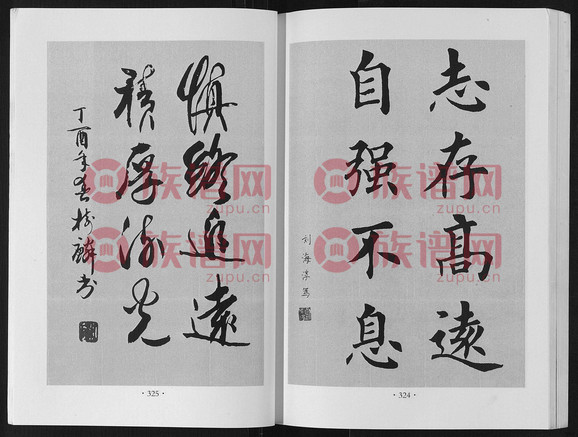 志存高遠
自强不息
刘海
·324·
慎終追遠
積厚流光
丁酉年
樹麟书
·325·
族谱网
zupu.cn
族谱网
zupu.cn
族谱网
zupu.cn
族谱网
zupu.cn